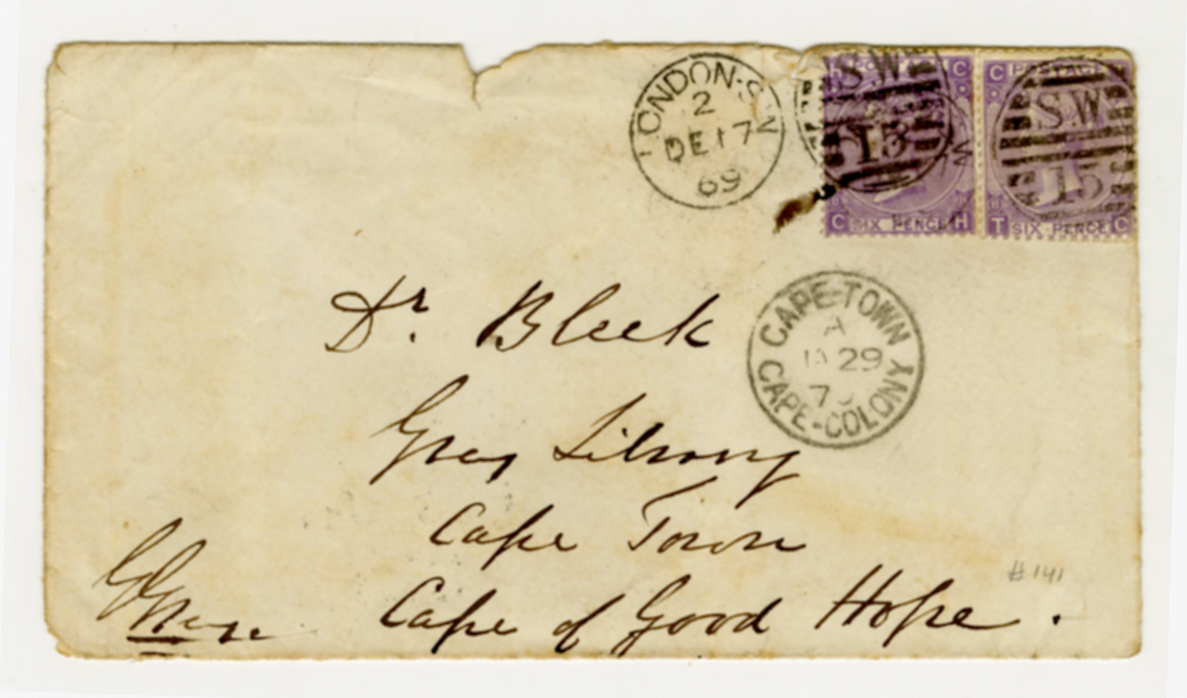 LONDON·S.W
2
DE 17
69
S.W
15
C
SIX PENCE
H
C
POSTAGE
S.W
15
T
SIX PENCE
C
CAPE-TOWN
A
JA 29
CAPE-COLONY
Dr. Bleek
Grey Library
Cape Town
Cape of Good Hope.
#141